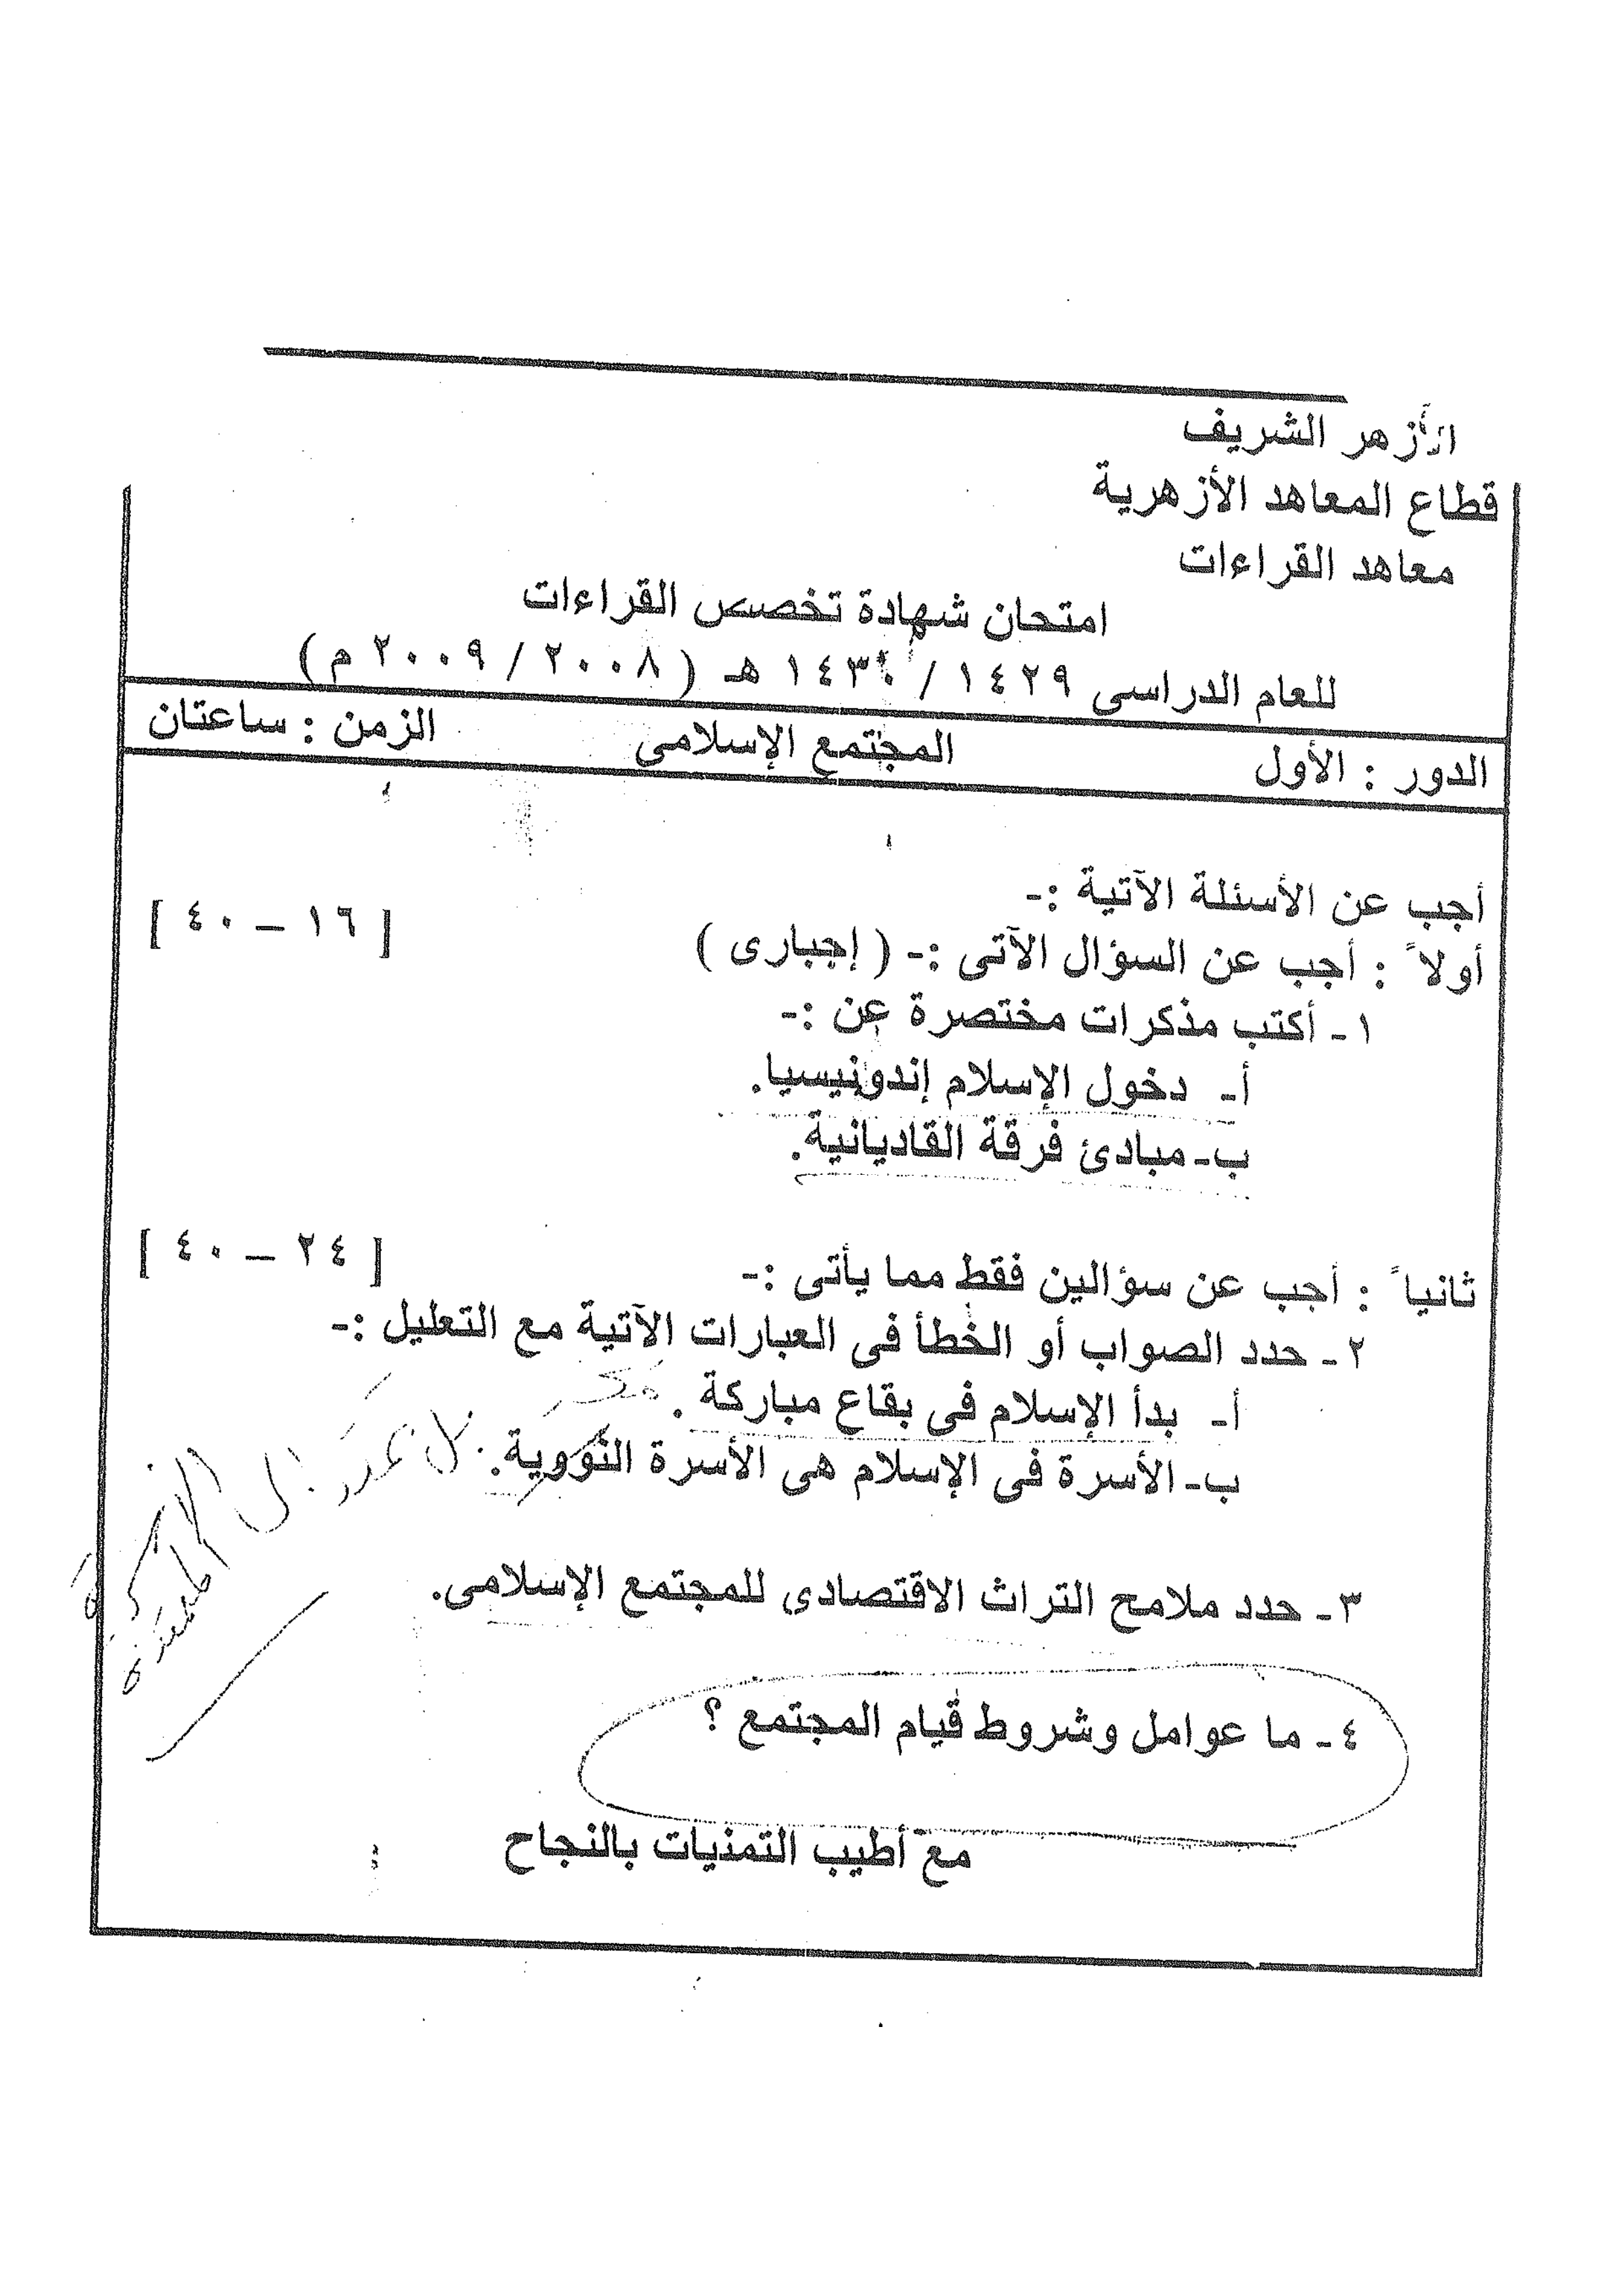 الأزهر الشريف
قطاع المعاهد الأزهرية
معاهد القراءات
امتحان شهادة تخصص القراءات
للعام الدراسى ١٤٢٩ / ١٤٣٠ هـ ( ٢٠٠٨ / ٢٠٠٩ م )
الدور : الأول المجتمع الإسلامى الزمن : ساعتان
أجب عن الأسئلة الآتية :-
أولاً : أجب عن السؤال الآتى :- ( إجبارى ) [ ١٦ – ٤٠ ]
١- أكتب مذكرات مختصرة عن :-
أ- دخول الإسلام إندونيسيا.
ب- مبادئ فرقة القاديانية.
ثانياً : أجب عن سؤالين فقط مما يأتى :- [ ٢٤ – ٤٠ ]
٢- حدد الصواب أو الخطأ فى العبارات الآتية مع التعليل :-
أ- بدأ الإسلام فى بقاع مباركة .
ب- الأسرة فى الإسلام هى الأسرة النووية.
٣- حدد ملامح التراث الاقتصادى للمجتمع الإسلامى.
٤- ما عوامل وشروط قيام المجتمع ؟
مع أطيب التمنيات بالنجاح